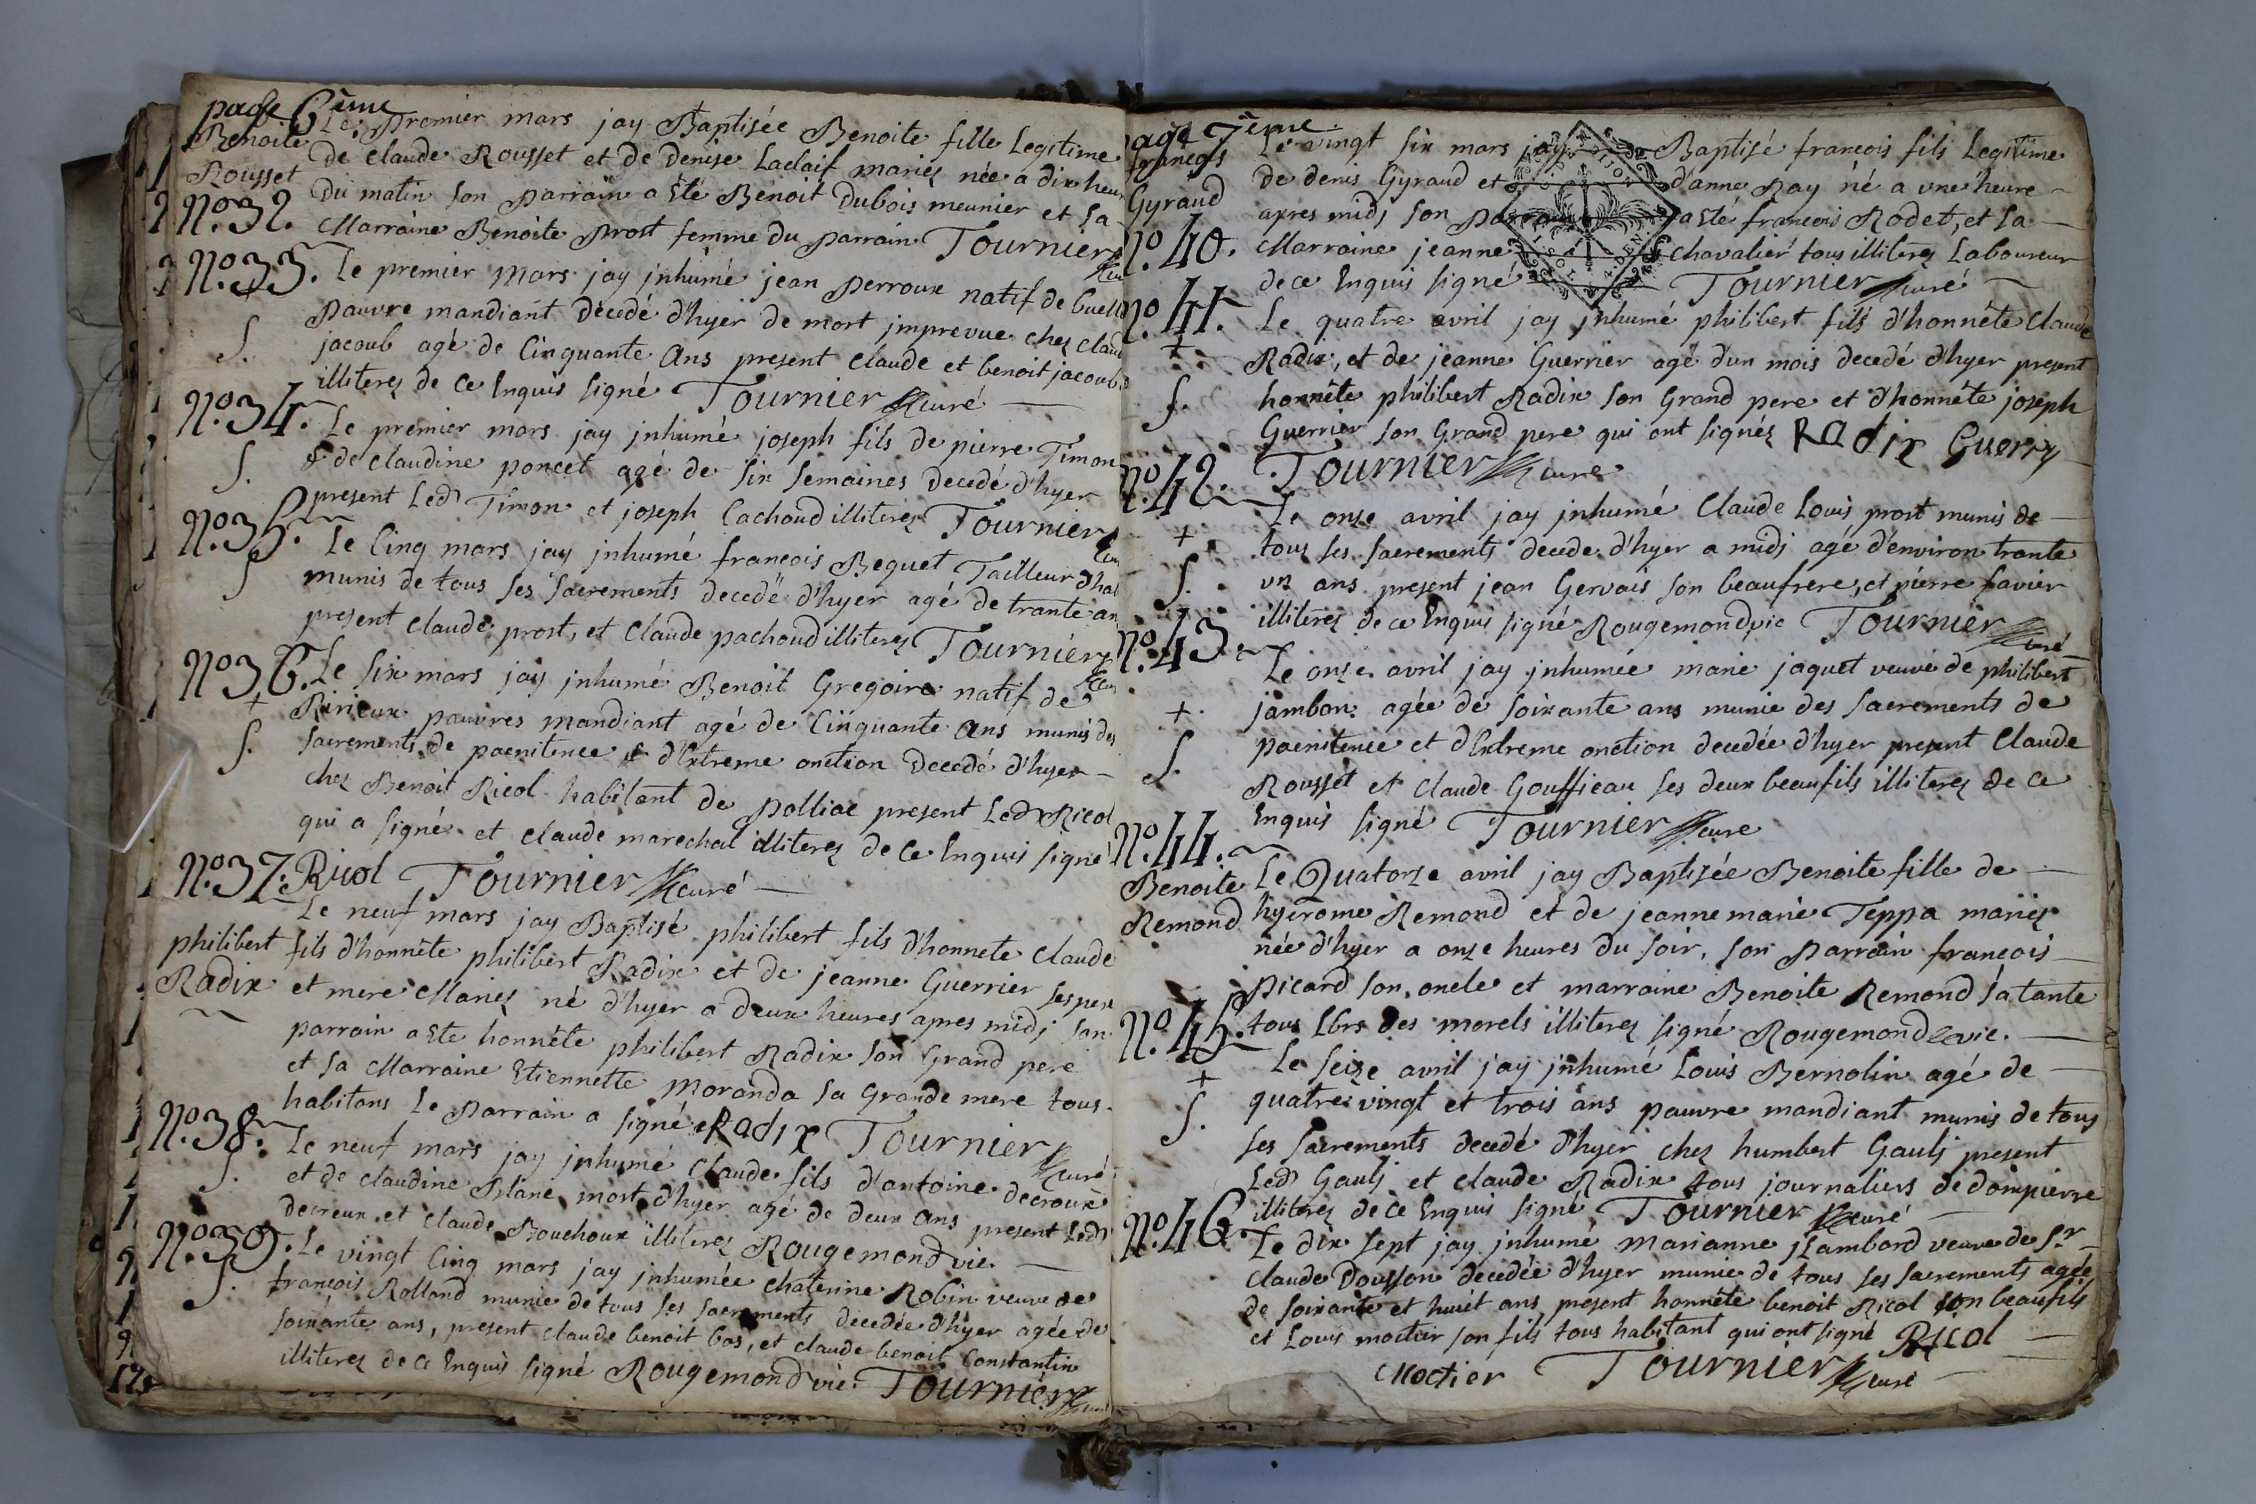 page 6ème
Benoite
Rousset
N°.32.
Le Premier mars jay Baptisée Benoite fille Legitime
de claude Rousset et de Denise Laclaif mariez née a dix heu
du matin son parrain a Eté Benoit Dubois meunier et sa
Marraine Benoite Prost femme du parrain Tournier
N°.33.
Le premier mars jay jnhumé jean perroux natif de buell
pauvre mandiant décedé d'hyer de mort jmprevue chez claud
jacoub agé de Cinquante ans present claude et benoit jacoub
illiterez de ce Enquis signé Tournier curé
N°.34.
Le premier mars jay jnhumé joseph fils de pierre Timon
& de claudine poncet agé de six semaines decedé d'hyer
present Led Timon et joseph Cachoud illiterez Tournier
N°.35.
Le Cinq mars jay jnhumé francois Bequet Tailleur d'hab
munis de tous ses sacrements decedé d'hyer agé de trante an
present claude prost, et Claude pachoud illiterez Tournier
N°.36.
Le six mars jay jnhumé Benoit Gregoire natif de
Ririeux pauvres mandiant agé de Cinquante ans munis des
sacrements de paenitence & d'Extreme onction Decedé d'hyer
chez Benoit Ricol habitant de polliac present Led Ricol
qui a signé et claude marechal illiterez de ce Enquis signé
N°.37.
Ricol Tournier curé
philibert
Radix
Le neuf mars jay Baptisé philibert fils d'honnete claude
fils d'honnête philibert Radix et de jeanne Guerrier ses pere
et mere Mariez né d'hyer a deux heures apres midj son
parrain a Eté honnête philibert Radix son Grand pere
et sa Marraine Etiennette moranda sa Grande mere tous
habitans Le parrain a signé Radix Tournier curé
N°.38.
Le neuf mars jay jnhumé claude fils d'antoine decroux
et de claudine Blanc mort d'hyer agé de deux ans present Led
decreux et claude Bouchoux illiterez Rougemond vic.
N°.39.
Le vingt Cinq mars jay jnhumée chaterine Robin veuve de
francois Rolland munie de tous ses sacrements decedée d'hyer agée de
soixante ans, present claude benoit bas, et claude benoit Constantin
illiterez de ce Enquis signé Rougemond vic. Tournier
page 7ème
francois
Gyraud
N°.40.
Le vingt six mars jay Baptisé francois fils Legitime
de denis Gyraud et d'anne Ray né a une heure
apres midj son parrain a Eté francois Rodet, et sa
Marraine jeanne chavalier tous illiterez Laboureur
de ce Enquis signé Tournier curé
N°.41.
Le quatre avril jay jnhumé philibert fils d'honnête Claude
Radix, et de jeanne Guerrier agé d'un mois decedé d'hyer present
honnête philibert Radix son Grand pere et d'honnête joseph
Guerrier son Grand pere qui ont signéz Radix Guerry
N°.42.
Tournier cure
Le onze avril jay jnhumé Claude Louis prost munis de
tous ses sacrements decede d'hyer a midj agé d'environ trante
un ans present jean Gervais son beaufrere, et pierre favier
illiterez de ce Enquis signé Rougemond vic Tournier curé
N°.43.
Le onze avril jay jnhumée marie jaquet veuve de philibert
jambon agée de soixante ans munie des sacrements de
paenitence et d'Extreme onction decedée d'hyer present Claude
Rousset et Claude Gouffieau ses deux beaufils illiterez de ce
Enquis signé Tournier cure
N°.44.
Benoite
Remond
Le Quatorze avril jay Baptizée Benoite fille de
hyerome Remond et de jeanne marie Teppa mariez
née d'hyer a onze heures du soir, son parrain francois
picard son oncle et marraine Benoite Remond sa tante
tous Lbrs des morels illiterez signé Rougemond vic.
N°.45.
Le seize avril jay jnhumé Louis Bernolin agé de
quatre vingt et trois ans pauvre mandiant munis de tous
ses sacrements decedé d'hyer chez humbert Gaulj present
Led Gaulj et claude Radix tous journaliers de dompierre
illiterez de ce Enquis signé Tournier curé
N°.46.
Le dix sept jay jnhumé marianne jsambard veuve de Sr
claude Dousson decedée d'hyer munie de tous ses sacrements agée
de soixante et huit ans present honnête benoit Ricol son beaufils
et Louis moctier son fils tous habitant qui ont signé Ricol
Moctier Tournier curé